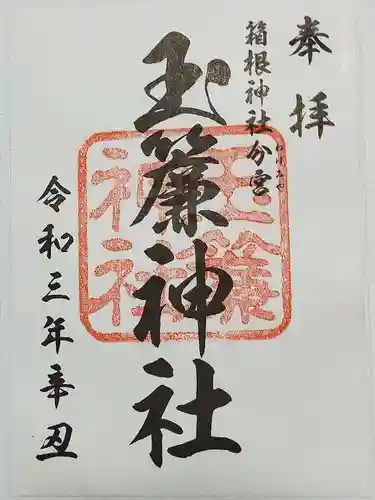 奉拝
箱根神社分宮
わけみや
玉簾神社
玉簾
神社
令和三年辛丑